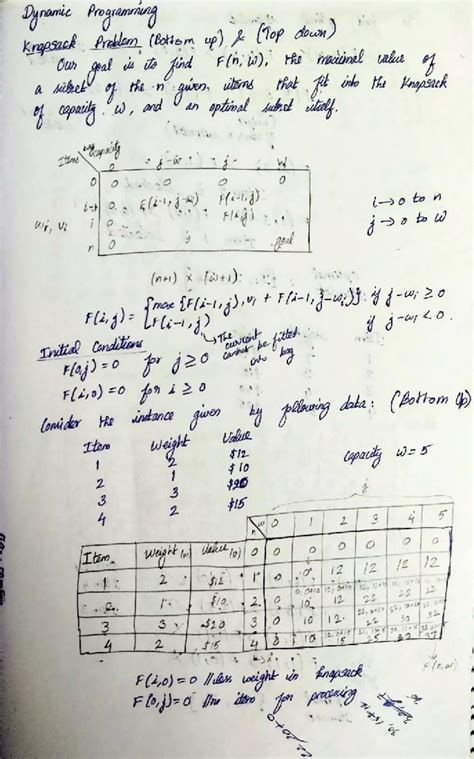 Dynamic Programming
Knapsack Problem (Bottom up) & (Top down)
Our goal is to find F(n, w), the maximal value of
a subset of the n given items that fit into the Knapsack
of capacity w, and an optimal subset itself.
Items Capacity 0 j-wi j W
0 0 0 0 0
i-1 0 F(i-1, j-wi) F(i-1, j)
wi, vi i 0 F(i, j)
n 0 goal
i → 0 to n
j → 0 to w
(n+1) x (w+1):
F(i, j) = { max {F(i-1, j), vi + F(i-1, j-wi)} if j-wi ≥ 0
F(i-1, j) if j-wi < 0.
→ The current cannot be fitted into bag
Initial Conditions
F(0, j) = 0 for j ≥ 0
F(i, 0) = 0 for i ≥ 0
Consider the instance given by following data: (Bottom Up)
Item Weight Value
1 2 $12
2 1 $10
3 3 $20
4 2 $15
Capacity w = 5
j
w 0 1 2 3 4 5
Item Weight (w) Value (v) 0 0 0 0 0 0 0
1 2 $12 1 0 0 12 12 12 12
2 1 $10 2 0 10 12 22 22 22
3 3 $20 3 0 10 12 22 30 32
4 2 $15 4 0 10 15 25 37
F(n, w)
F(i, 0) = 0 // less weight in knapsack
F(0, j) = 0 // no item for processing